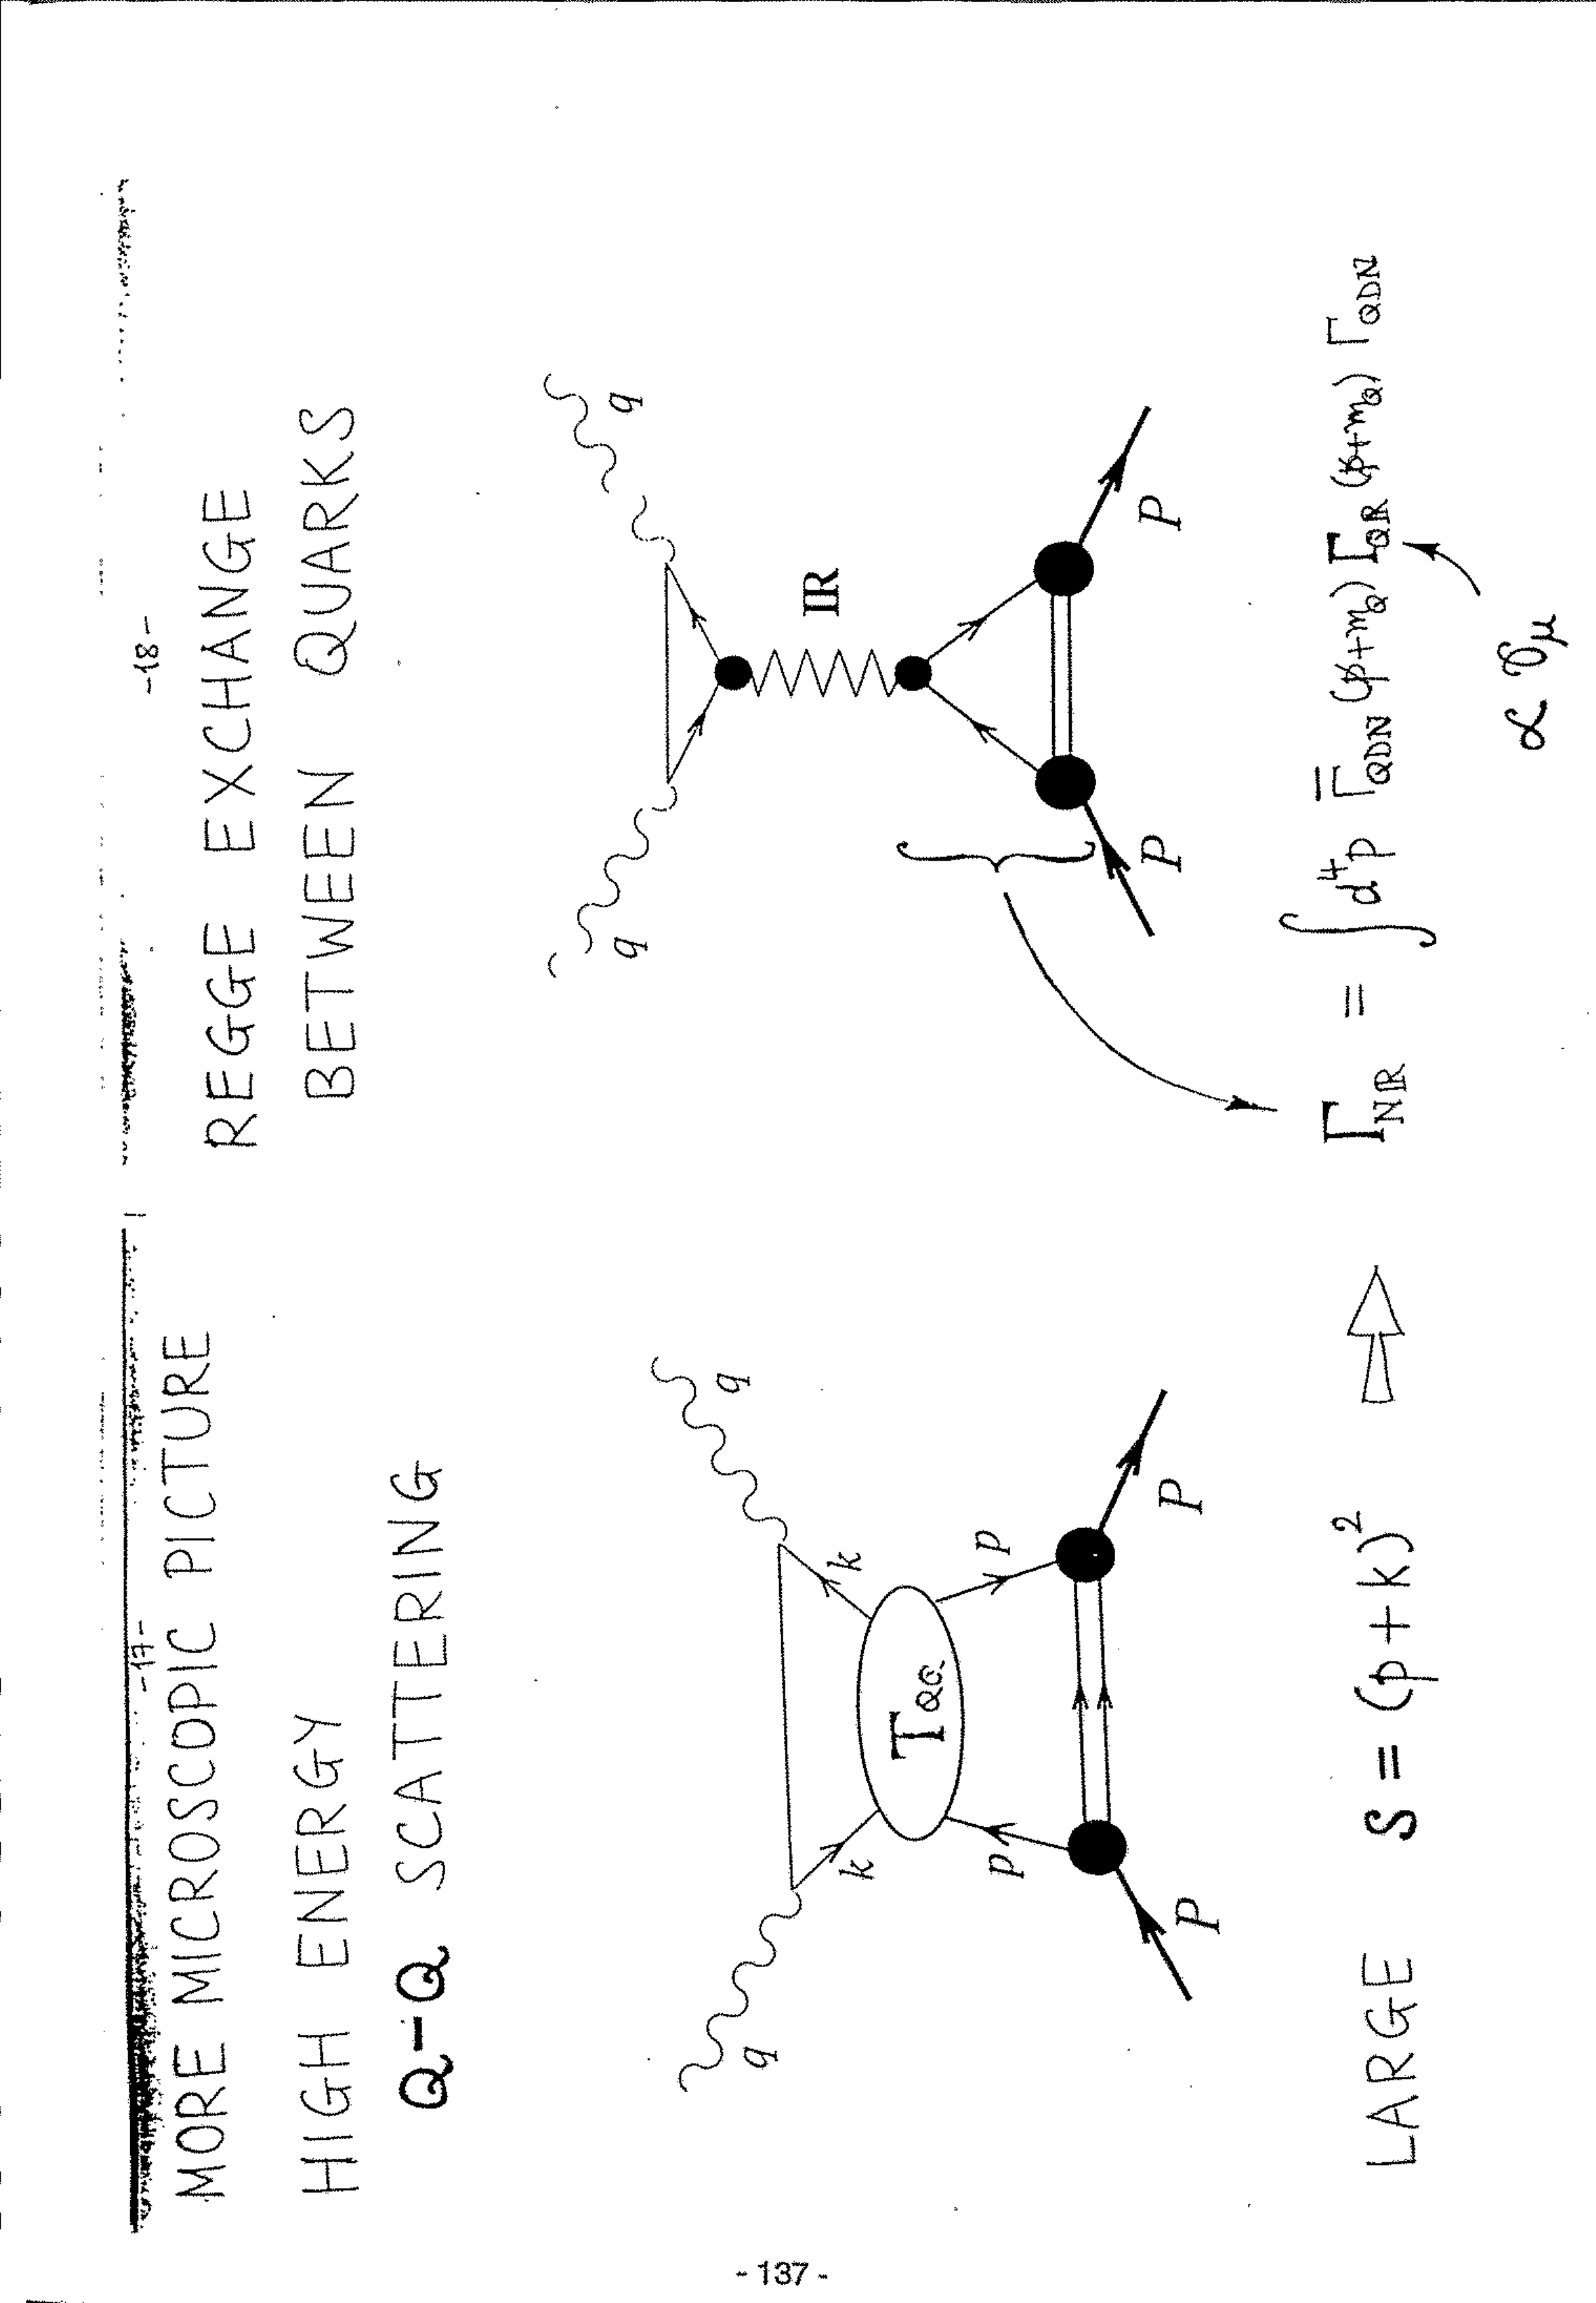 -17-
MORE MICROSCOPIC PICTURE
HIGH ENERGY
Q-Q SCATTERING
q q
k k
T_QQ
p p
P P
LARGE S = (p + k)²
-18-
REGGE EXCHANGE
BETWEEN QUARKS
q q
IR
P P
Γ_NR = ∫ d⁴p Γ̅_QDN (p̸+m_Q) Γ_QR (p̸+m_Q) Γ_QDN
∝ γ_μ
- 137 -